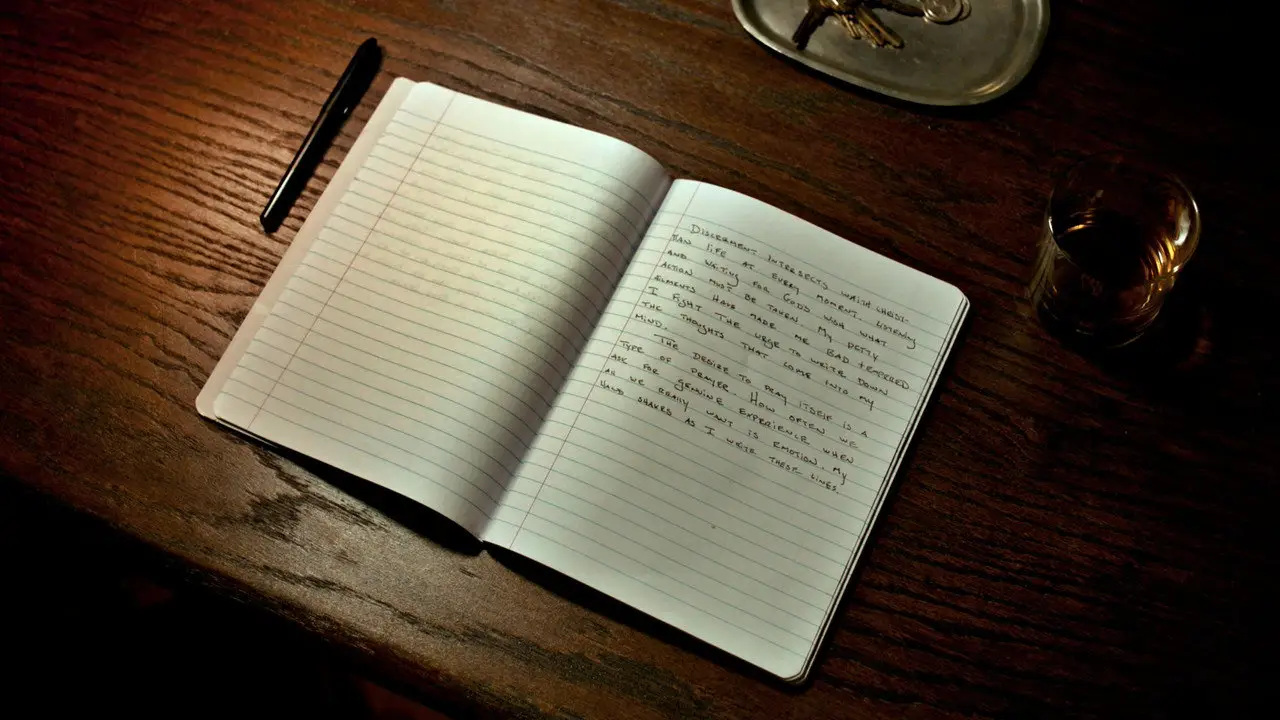 DISCERNMENT INTERSECTS WITH CHRIST-
IAN LIFE AT EVERY MOMENT. LISTENING
AND WAITING FOR GODS WISH WHAT
ACTION MUST BE TAKEN. MY PETTY
AILMENTS HAVE MADE ME BAD TEMPERED
I FIGHT THE URGE TO WRITE DOWN
THE THOUGHTS THAT COME INTO MY
MIND.
THE DESIRE TO PRAY ITSELF IS A
TYPE OF PRAYER. HOW OFTEN WE
ASK FOR GENUINE EXPERIENCE WHEN
ALL WE REALLY WANT IS EMOTION. MY
HAND SHAKES AS I WRITE THESE LINES.